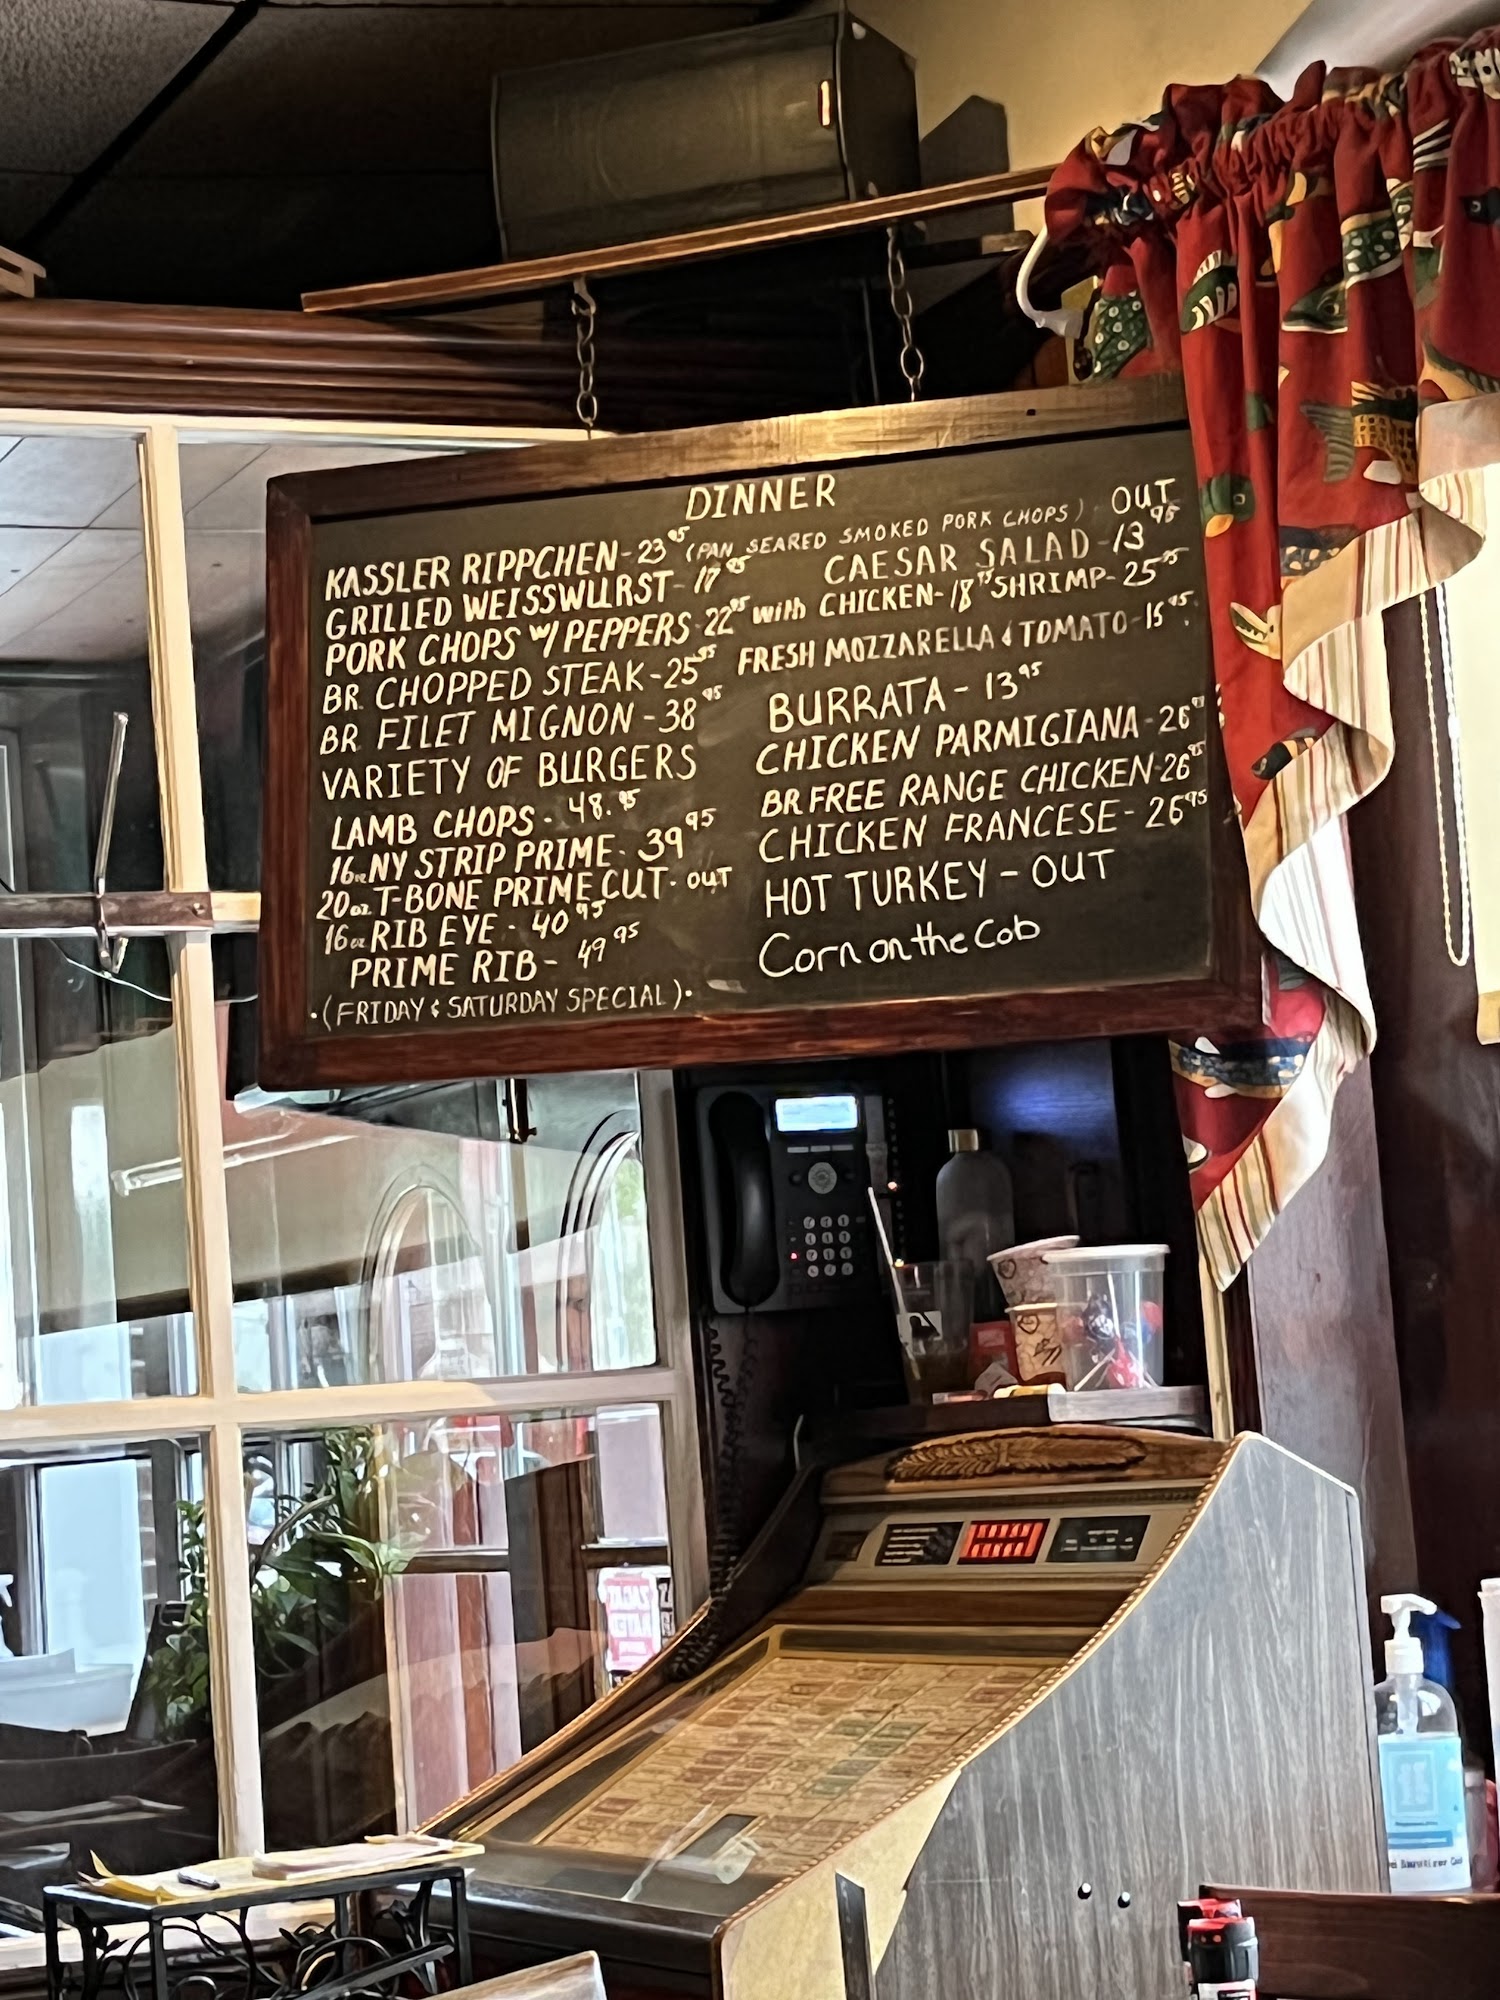 DINNER
KASSLER RIPPCHEN - 23 95 (PAN SEARED SMOKED PORK CHOPS) OUT
GRILLED WEISSWURST - 17 95
PORK CHOPS w/ PEPPERS 22 95
BR. CHOPPED STEAK - 25 95
BR FILET MIGNON - 38 95
VARIETY OF BURGERS
LAMB CHOPS - 48.95
16oz NY STRIP PRIME - 39 95
20oz T-BONE PRIME CUT - OUT
16oz RIB EYE - 40 95
PRIME RIB - 49 95
•(FRIDAY & SATURDAY SPECIAL)•
CAESAR SALAD - 13 95
with CHICKEN - 18 95 SHRIMP - 25 95
FRESH MOZZARELLA & TOMATO - 15 95
BURRATA - 13 95
CHICKEN PARMIGIANA - 26 95
BR FREE RANGE CHICKEN - 26 95
CHICKEN FRANCESE - 26 95
HOT TURKEY - OUT
Corn on the Cob